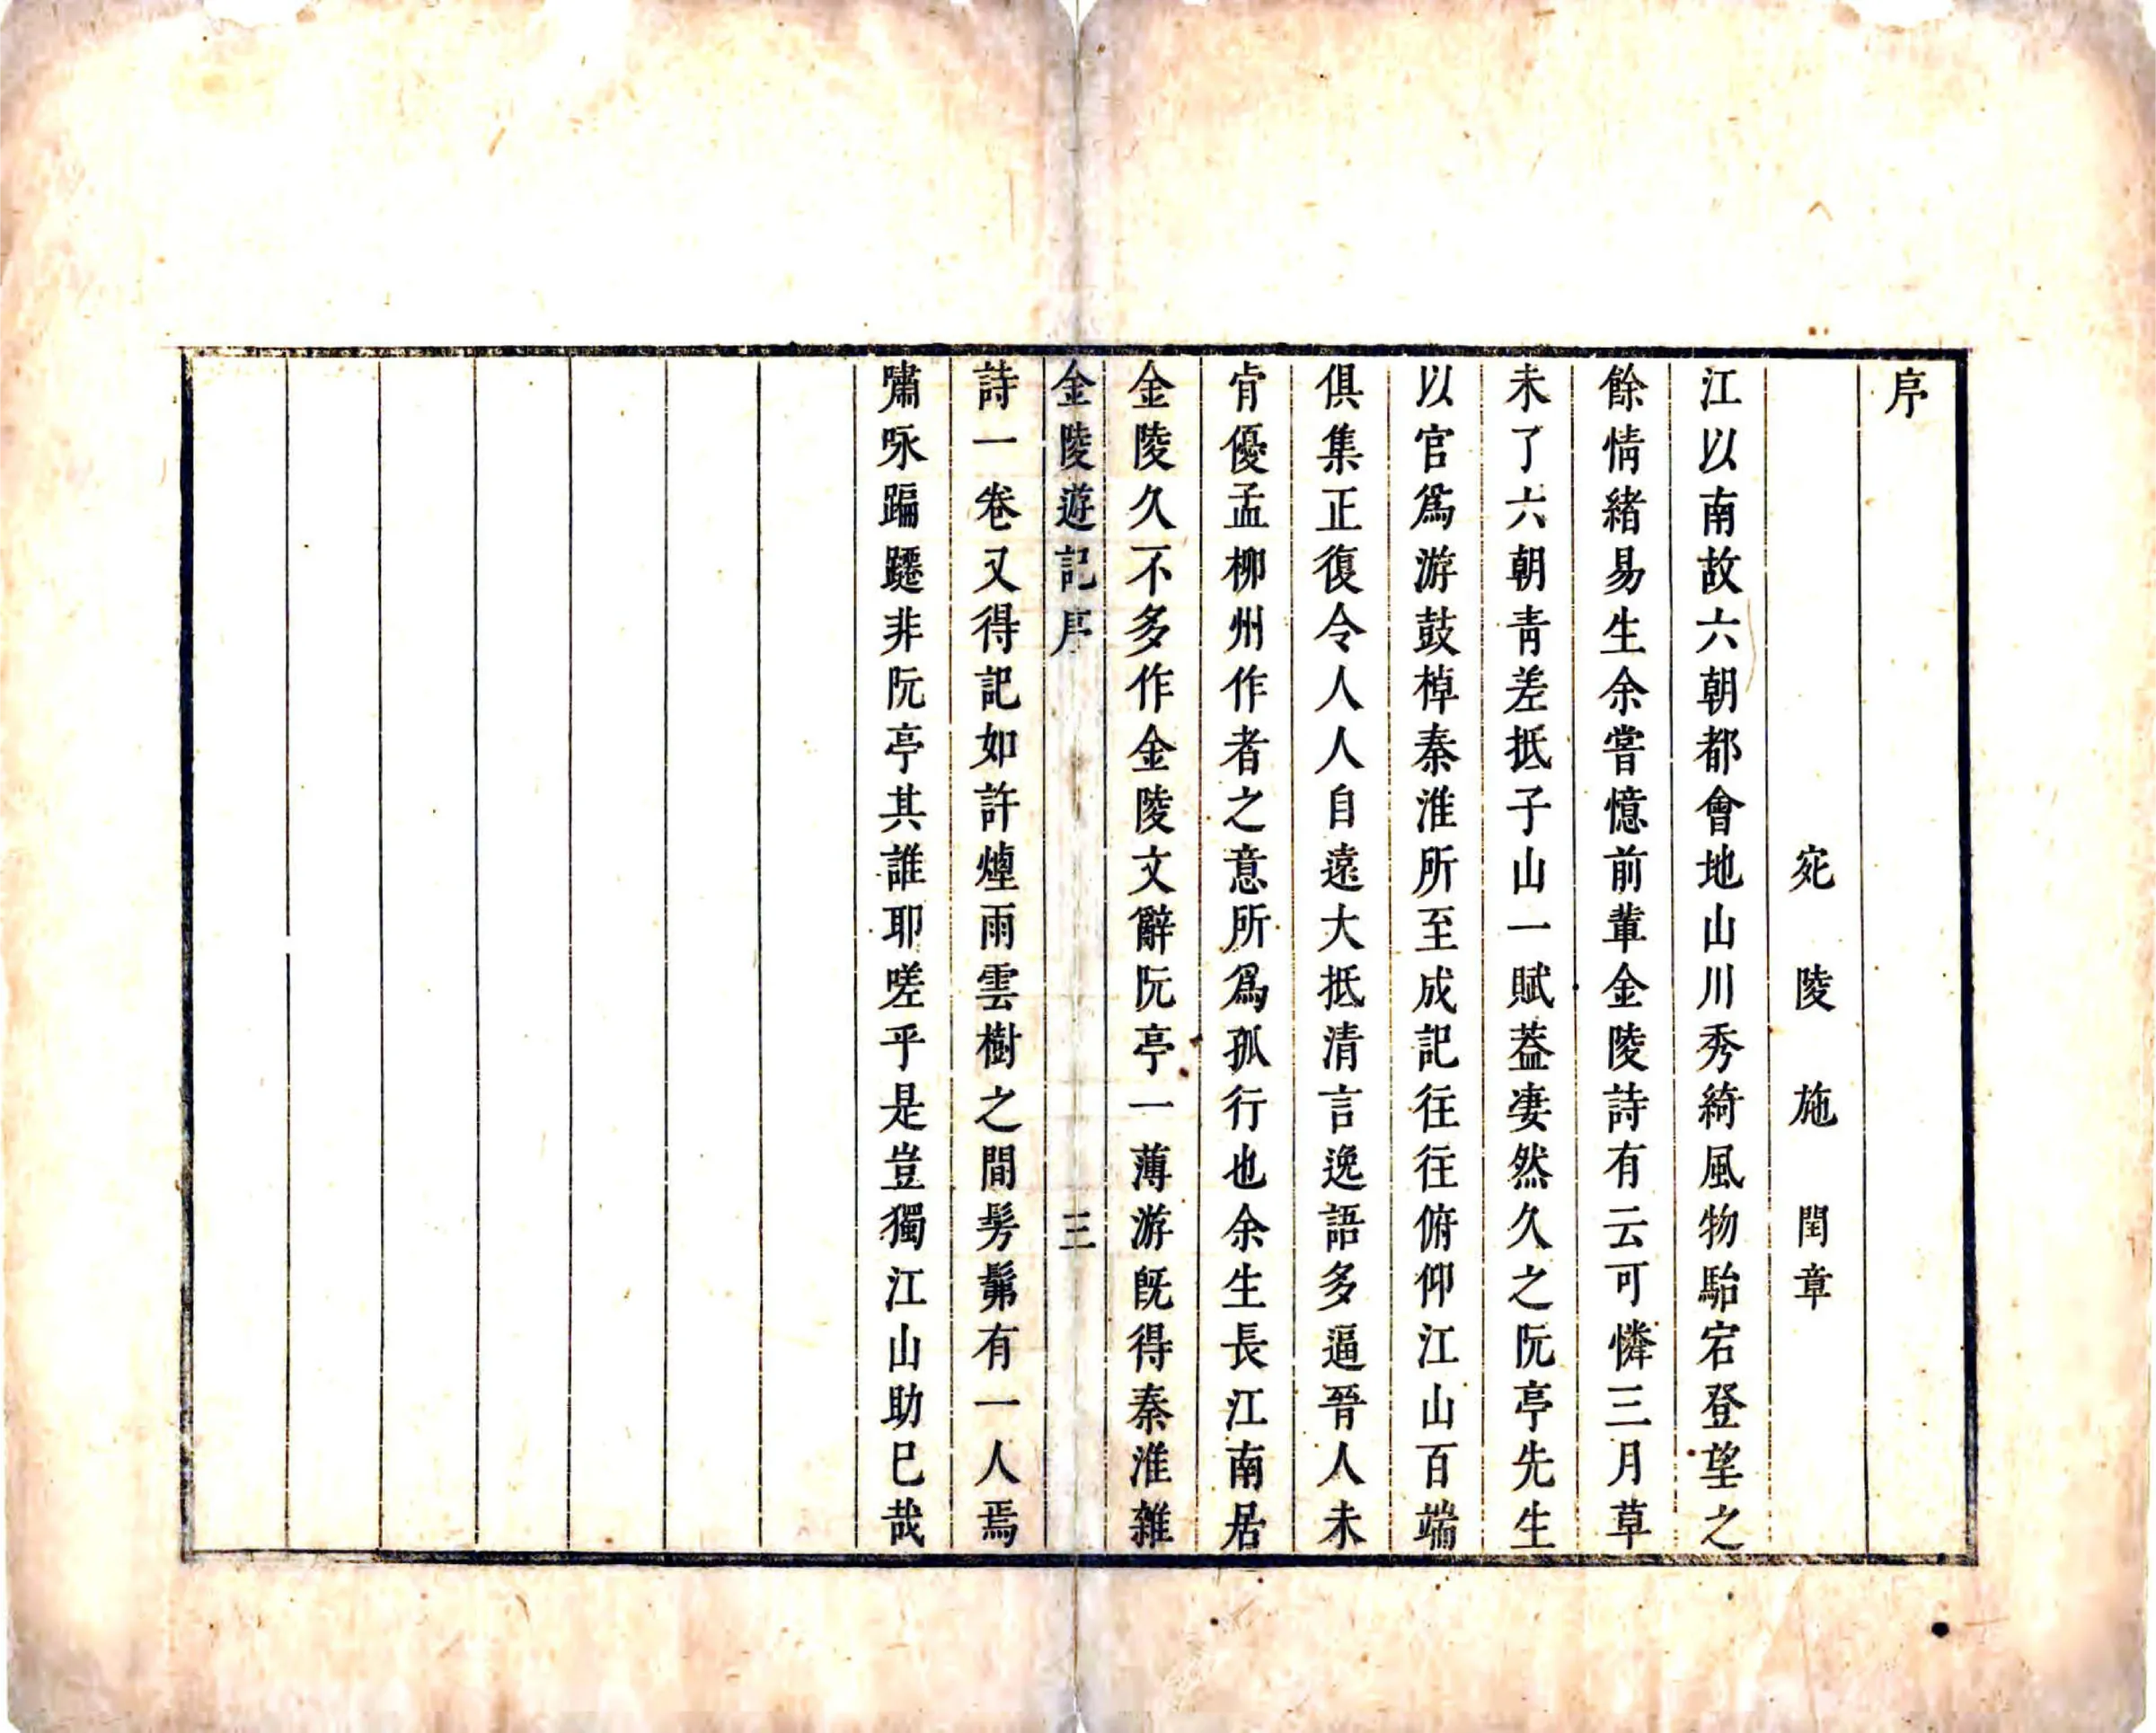 序
宛陵施閏章
江以南故六朝都會地山川秀綺風物駘宕登望之
餘情緒易生余嘗憶前輩金陵詩有云可憐三月草
未了六朝青差抵子山一賦葢凄然久之阮亭先生
以官爲游鼓棹秦淮所至成記往往俯仰江山百端
俱集正復令人人自遠大抵清言逸語多逼晉人未
肯優孟柳州作者之意所爲孤行也余生長江南居
金陵久不多作金陵文辭阮亭一薄游旣得秦淮雜
金陵遊記序 三
詩一卷又得記如許煙雨雲樹之間髣髴有一人焉
嘯咏蹁躚非阮亭其誰耶嗟乎是豈獨江山助已哉